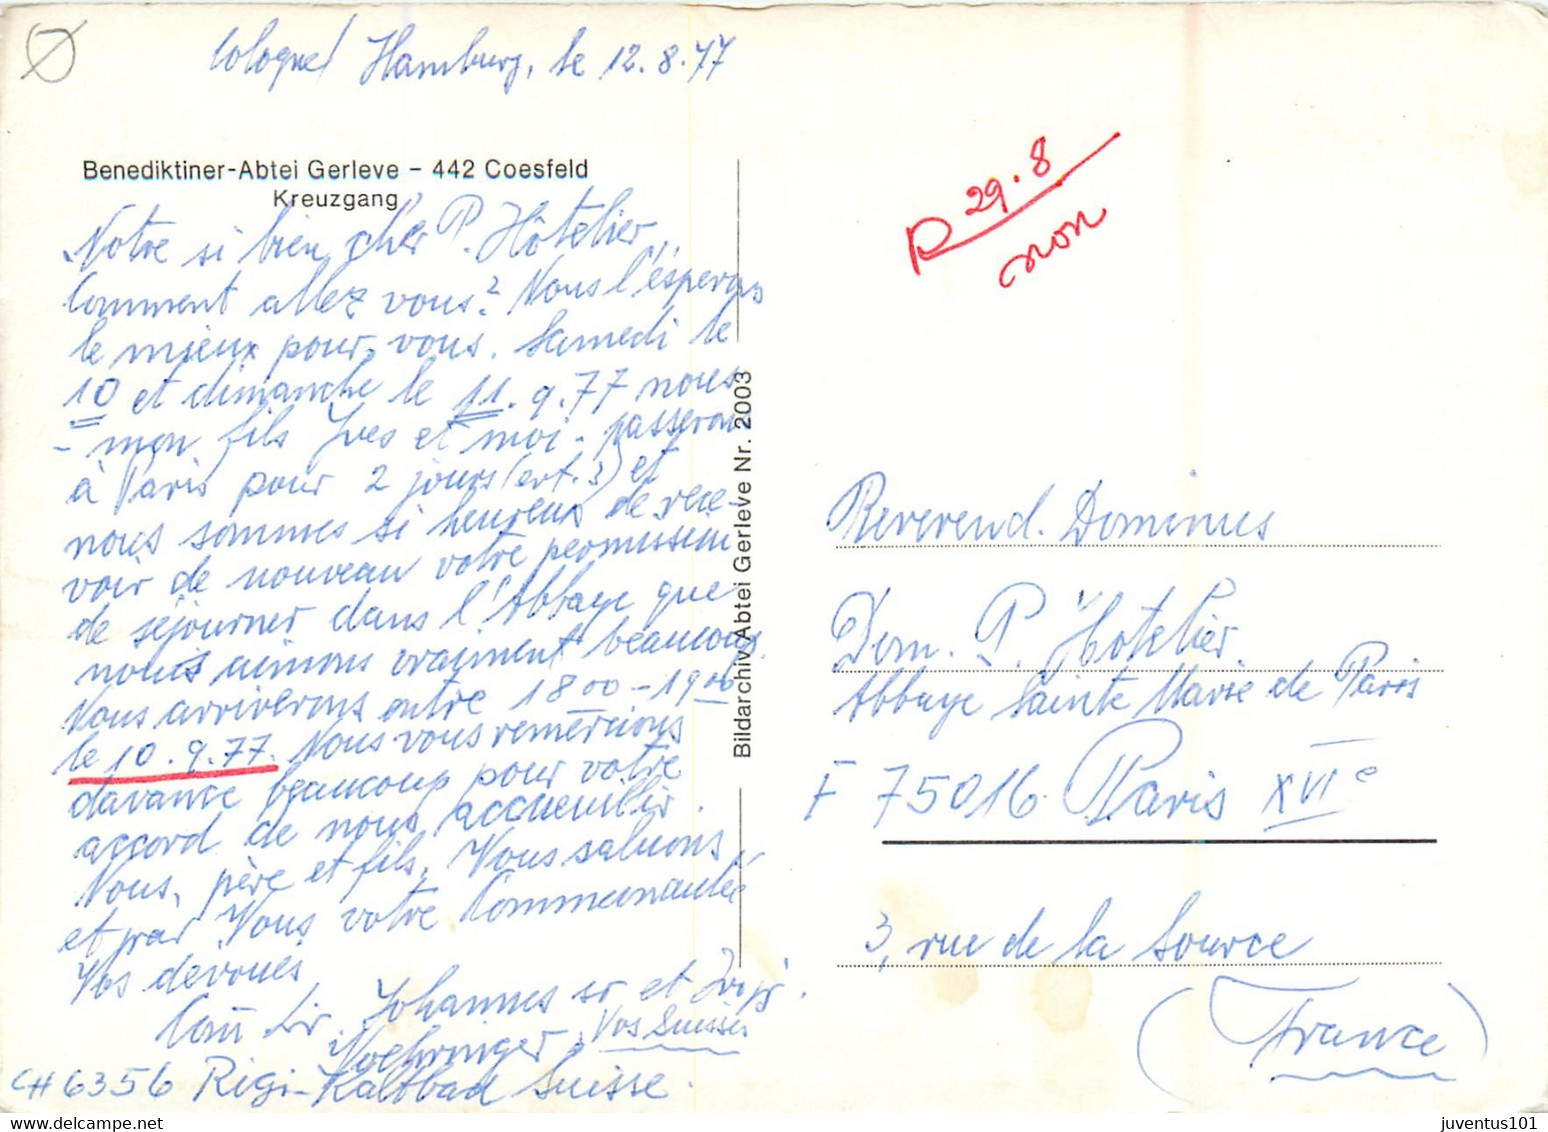 Cologne/ Hamburg, le 12.8.77
Benediktiner-Abtei Gerleve – 442 Coesfeld
Kreuzgang
Notre si bien cher P. Hôtelier,
Comment allez vous? Nous l'espérons
le mieux pour vous. Samedi le
10 et dimanche le 11.9.77 nous
- mon fils Yves et moi - passerons
à Paris pour 2 jours (evt. 3) et
nous sommes si heureux de rece-
voir de nouveau votre permission
de séjourner dans l'Abbaye que
nous aimons vraiment beaucoup.
Nous arriverons entre 18 00 - 19 00
le 10.9.77. Nous vous remercions
davance beaucoup pour votre
accord de nous accueuillir.
Nous, père et fils, Vous saluons
et par Vous votre Communautée
Vos devoues
Johannes sr et
Vos Suisses
CH 6356 Rigi-Kaltbad Suisse.
Bildarchiv Abtei Gerleve Nr. 2003
R 29.8
non
Reverend. Dominus
Dom. P. Hotelier
Abbaye Sainte Marie de Paris
F 75016 Paris XVIe
3, rue de la Source
(France)
juventus101